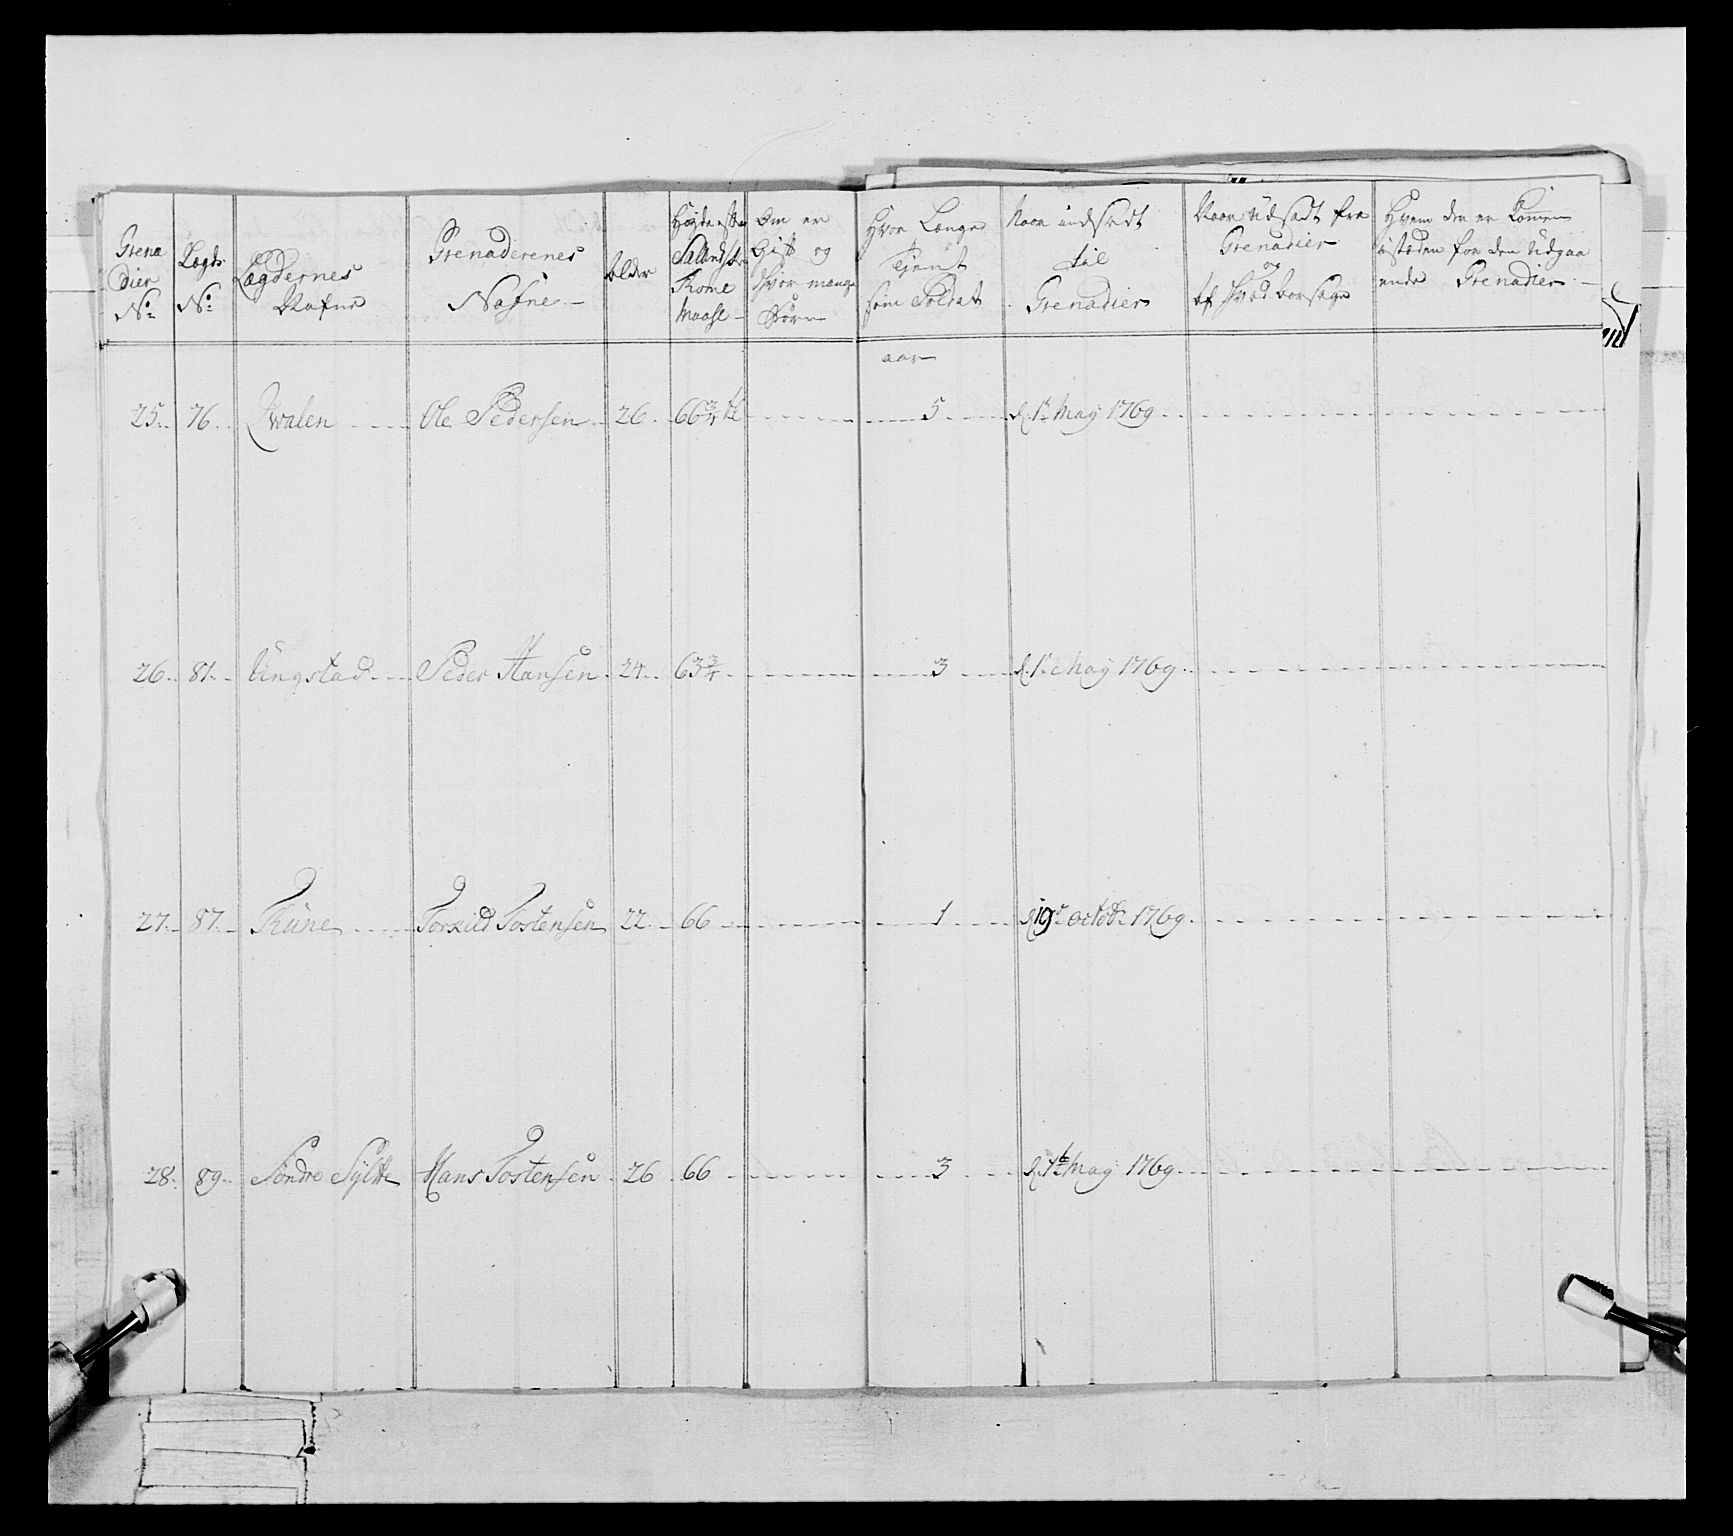 Grena
dier
No
Lægds
No
Lægdernes
Nafne
Grenaderenes
Nafne
Alder
Høyde efter
Siællandske
Tome
Maahl
Om er
Gift og
Hvor mange
Børn
Hvor Længe
Tjent
som Soldat
aar
Naar indsadt
til
Grenadier
Naar udsadt fra
Grenadier
og
af Hvad aarsage
Hvem der er kommen
isteden for den udgaa
ende Grenadier
25 76 Qvalen Ole Pedersen 26 66 3/4 tl 5 d. 1te May 1769
26 81 Ungstad Peder Hansen 24 63 3/4 3 d. 1te May 1769
27 87 Thune Torkild Tostensen 22 66 1 d. 19de octobr 1769
28 89 Søndre Sylte Hans Tostensen 26 66 3 d. 1te May 1769